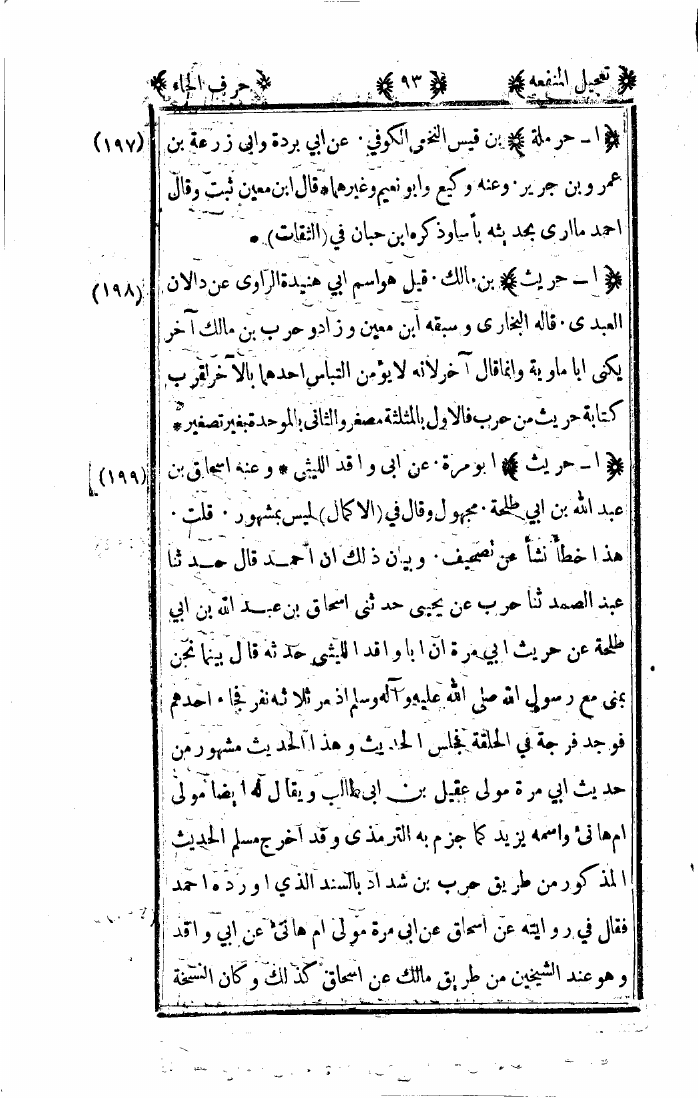 ﴿ تعجيل المنفعه ﴾ ﴿ ٩٣ ﴾ ﴿ حرف الحاء ﴾
﴿ ا ـ حرملة ﴾ بن قيس النخعي الكوفي ٠ عن ابي بردة وابى زرعة بن (١٩٧)
عمرو بن جرير ٠ وعنه وكيع وابو نعيم وغيرهما * قال ابن معين ثبت وقال
احمد ماارى بحديثه بأسا وذكره ابن حبان في (الثقات) *
﴿ ا ـ حريث ﴾ بن مالك ٠ قيل هو اسم ابي هنيدة الراوى عن دالان (١٩٨)
العبدى ٠ قاله البخارى وسبقه ابن معين وزاد وحرب بن مالك آخر
يكنى ابا ماوية وانما قال آخر لانه لا يؤمن التباس احدهما بالآخر لقرب
كتابة حريث من حرب فالاول بالمثلثة مصغر والثانى بالموحدة بغير تصغير *
﴿ ا ـ حريث ﴾ ابو مرة ٠ عن ابى واقد الليثى * وعنه اسحاق بن (١٩٩)
عبد الله بن ابي طلحة ٠ مجهول وقال في (الاكمال) ليس بمشهور ٠ قلت ٠
هذا خطأ نشأ عن تصحيف ٠ وبيان ذلك ان أحمد قال حدثنا
عبد الصمد ثنا حرب عن يحيى حدثنى اسحاق بن عبد الله بن ابي
طلحة عن حريث ابي مرة ان ابا واقد الليثى حدثه قال بينما نحن
بمنى مع رسول الله صلى الله عليه وآله وسلم اذ مر ثلاثه نفر فجاء احدهم
فوجد فرجة في الحلقة فجلس الحديث وهذا الحديث مشهور من
حديث ابي مرة مولى عقيل بن ابى طالب ويقال له ايضا مولى
ام هانئ واسمه يزيد كما جزم به الترمذى وقد آخرج مسلم الحديث
المذكور من طريق حرب بن شداد بالسند الذي اورده احمد
فقال في روايته عن اسحاق عن ابى مرة مولى ام هانئ عن ابي واقد
وهو عند الشيخين من طريق مالك عن اسحاق كذلك وكان النسخة